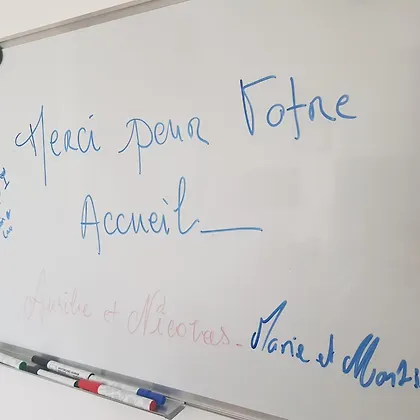 Merci pour Votre
Accueil
Aurélie et Nicolas - Marie et